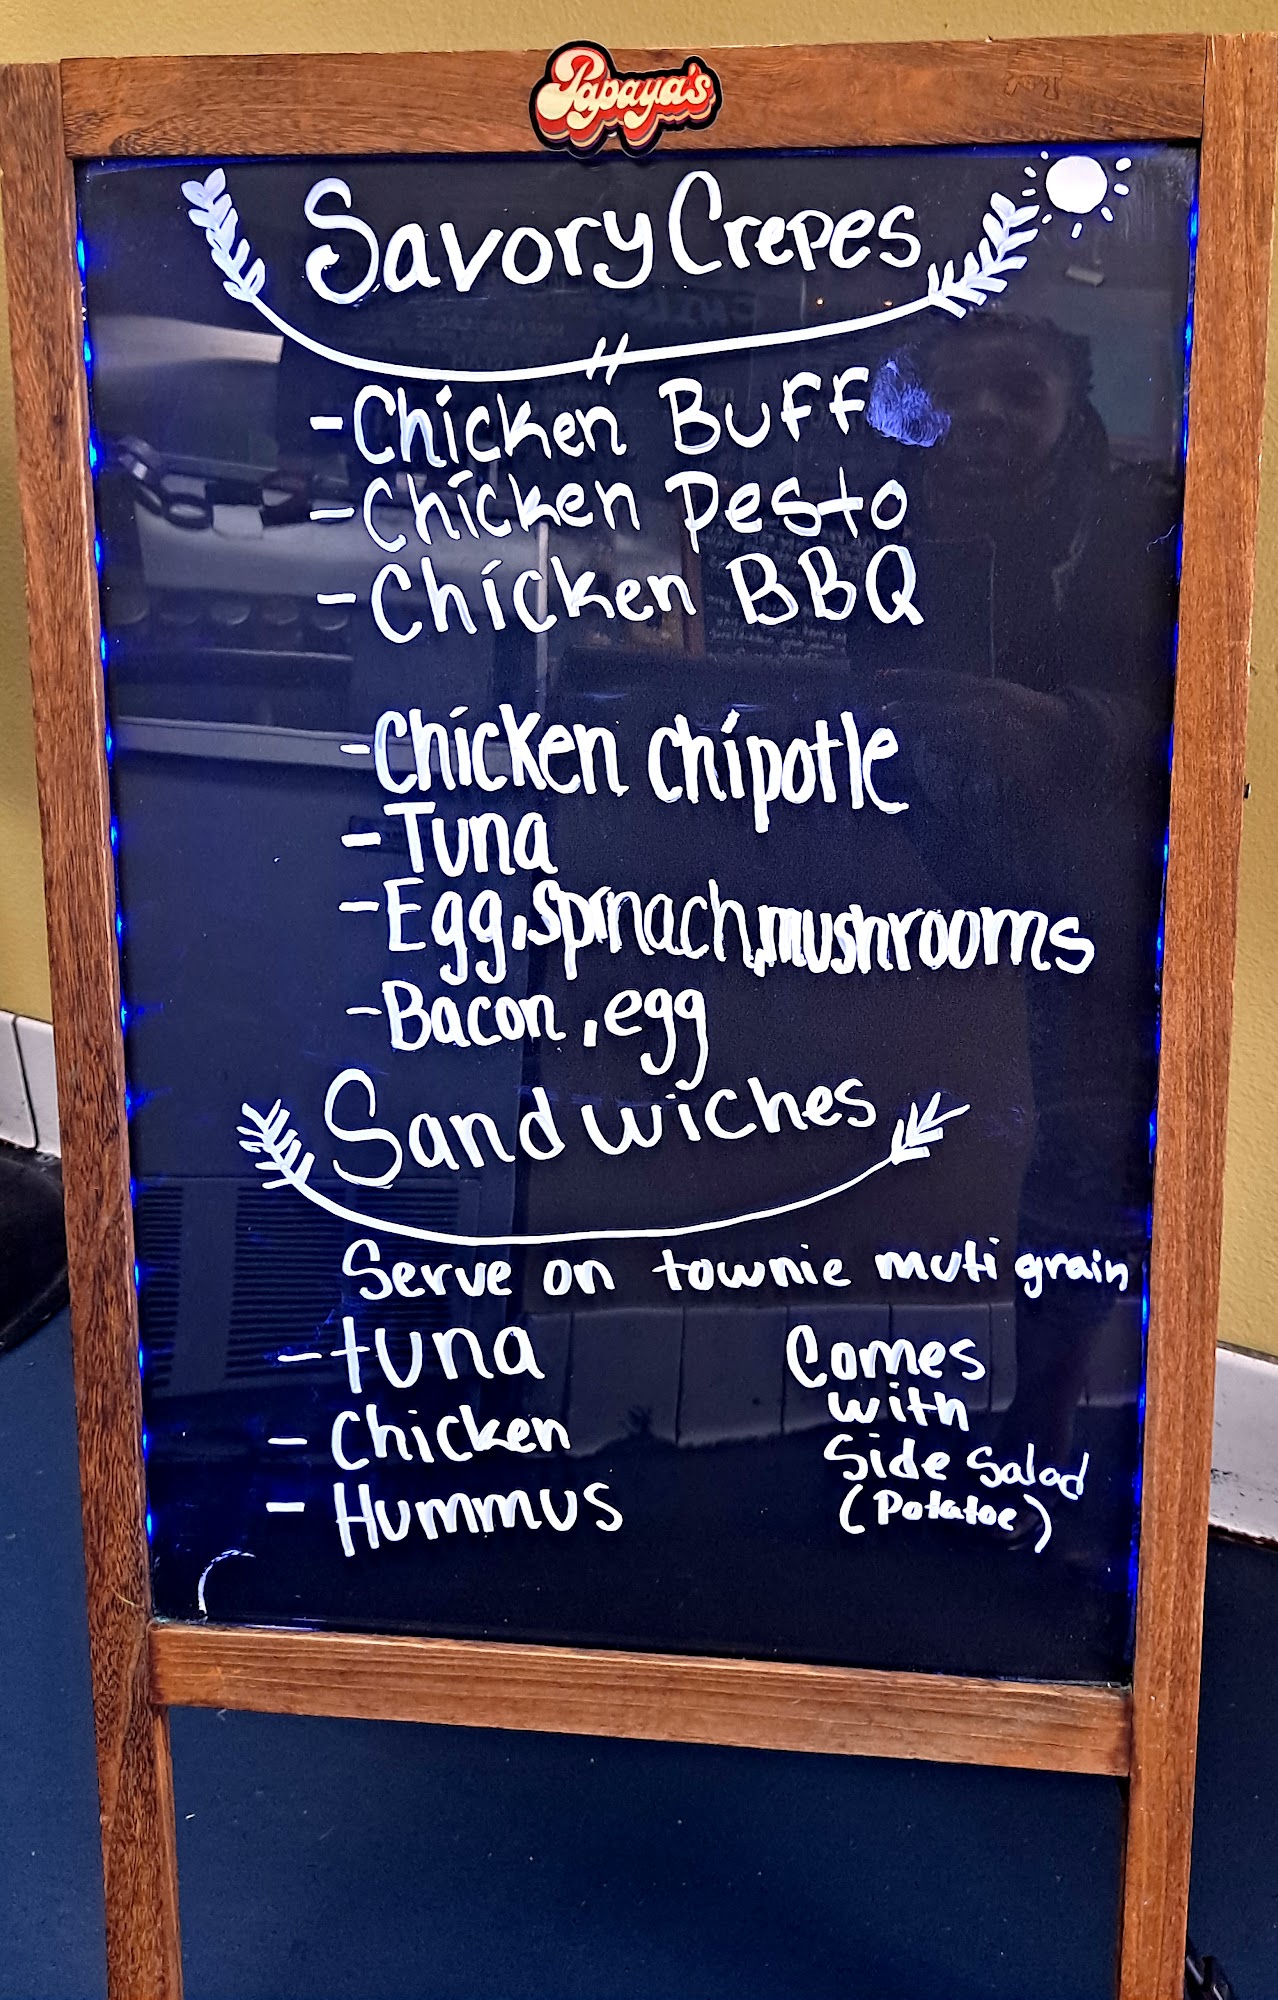 Papaya's
Savory Crepes
- Chicken Buff
- Chicken Pesto
- Chicken BBQ
- Chicken chipotle
- Tuna
- Egg, spinach, mushrooms
- Bacon, egg
Sandwiches
Serve on townie muti grain
- tuna
- Chicken
- Hummus
Comes
with
Side Salad
(Potatoe)